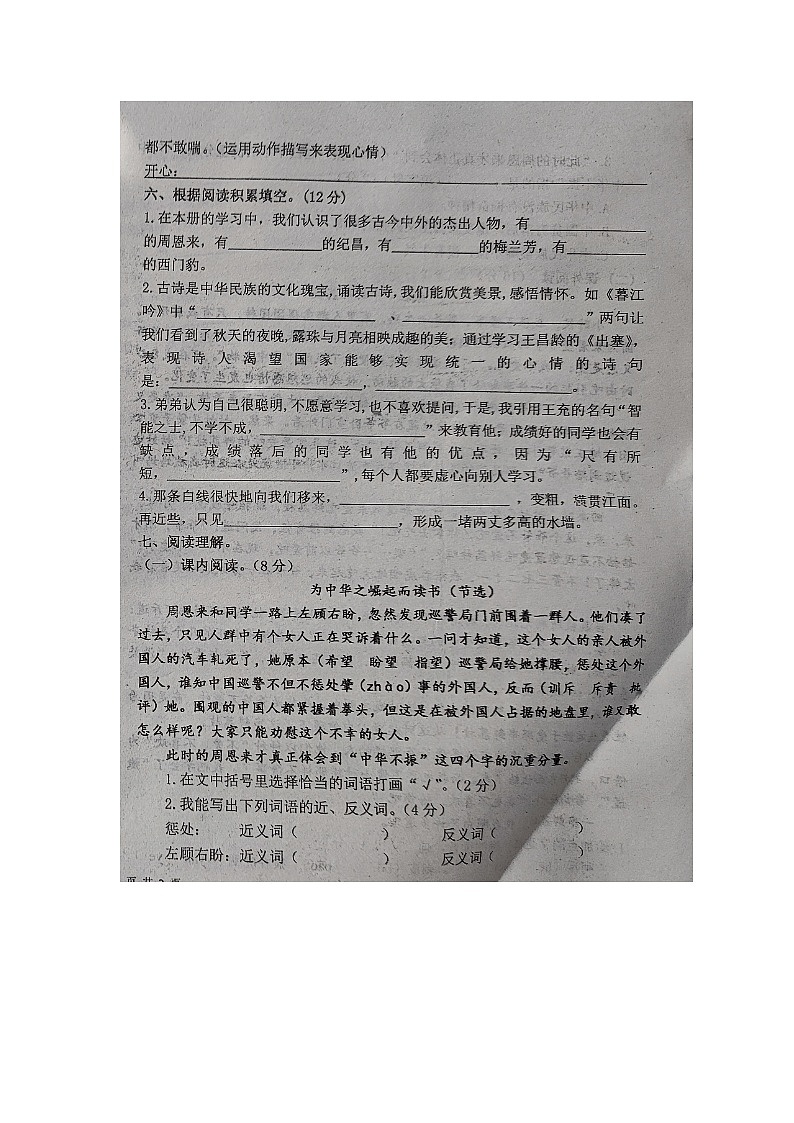 都不敢喘。(运用动作描写来表现心情)
开心:
六、根据阅读积累填空。(12分)
1.在本册的学习中，我们认识了很多古今中外的杰出人物，有
的周恩来，有____的纪昌，有____的梅兰芳，有____
的西门豹。
2.古诗是中华民族的文化瑰宝,诵读古诗,我们能欣赏美景,感悟情怀。如《暮江
吟》中“____、____”两句让
我们看到了秋天的夜晚,露珠与月亮相映成趣的美;通过学习王昌龄的《出塞》,
表现诗人渴望国家能够实现统一的心情的诗句
是:____,____。
3.弟弟认为自己很聪明,不愿意学习,也不喜欢提问,于是,我引用王充的名句“智
能之士,不学不成,____”来教育他;成绩好的同学也会有
缺点，成绩落后的同学也有他的优点，因为“尺有所
短，____”,每个人都要虚心向别人学习。
4.那条白线很快地向我们移来,____，变粗，横贯江面。
再近些，只见____，形成一堵两丈多高的水墙。
七、阅读理解。
(一)课内阅读。(8分)
为中华之崛起而读书（节选）
周恩来和同学一路上左顾右盼,忽然发现巡警局门前围着一群人。他们凑了
过去，只见人群中有个女人正在哭诉着什么。一问才知道，这个女人的亲人被外
国人的汽车轧死了，她原本（希望 盼望 指望）巡警局给她撑腰，惩处这个外
国人，谁知中国巡警不但不惩处肇（zhào）事的外国人，反而（训斥 斥责 批
评）她。围观的中国人都紧握着拳头，但这是在被外国人占据的地盘里，谁又敢
怎么样呢？大家只能劝慰这个不幸的女人。
此时的周恩来才真正体会到“中华不振”这四个字的沉重分量。
1.在文中括号里选择恰当的词语打画“√”。(2分)
2.我能写出下列词语的近、反义词。(4分)
惩处: 近义词( ) 反义词( )
左顾右盼:近义词( ) 反义词(